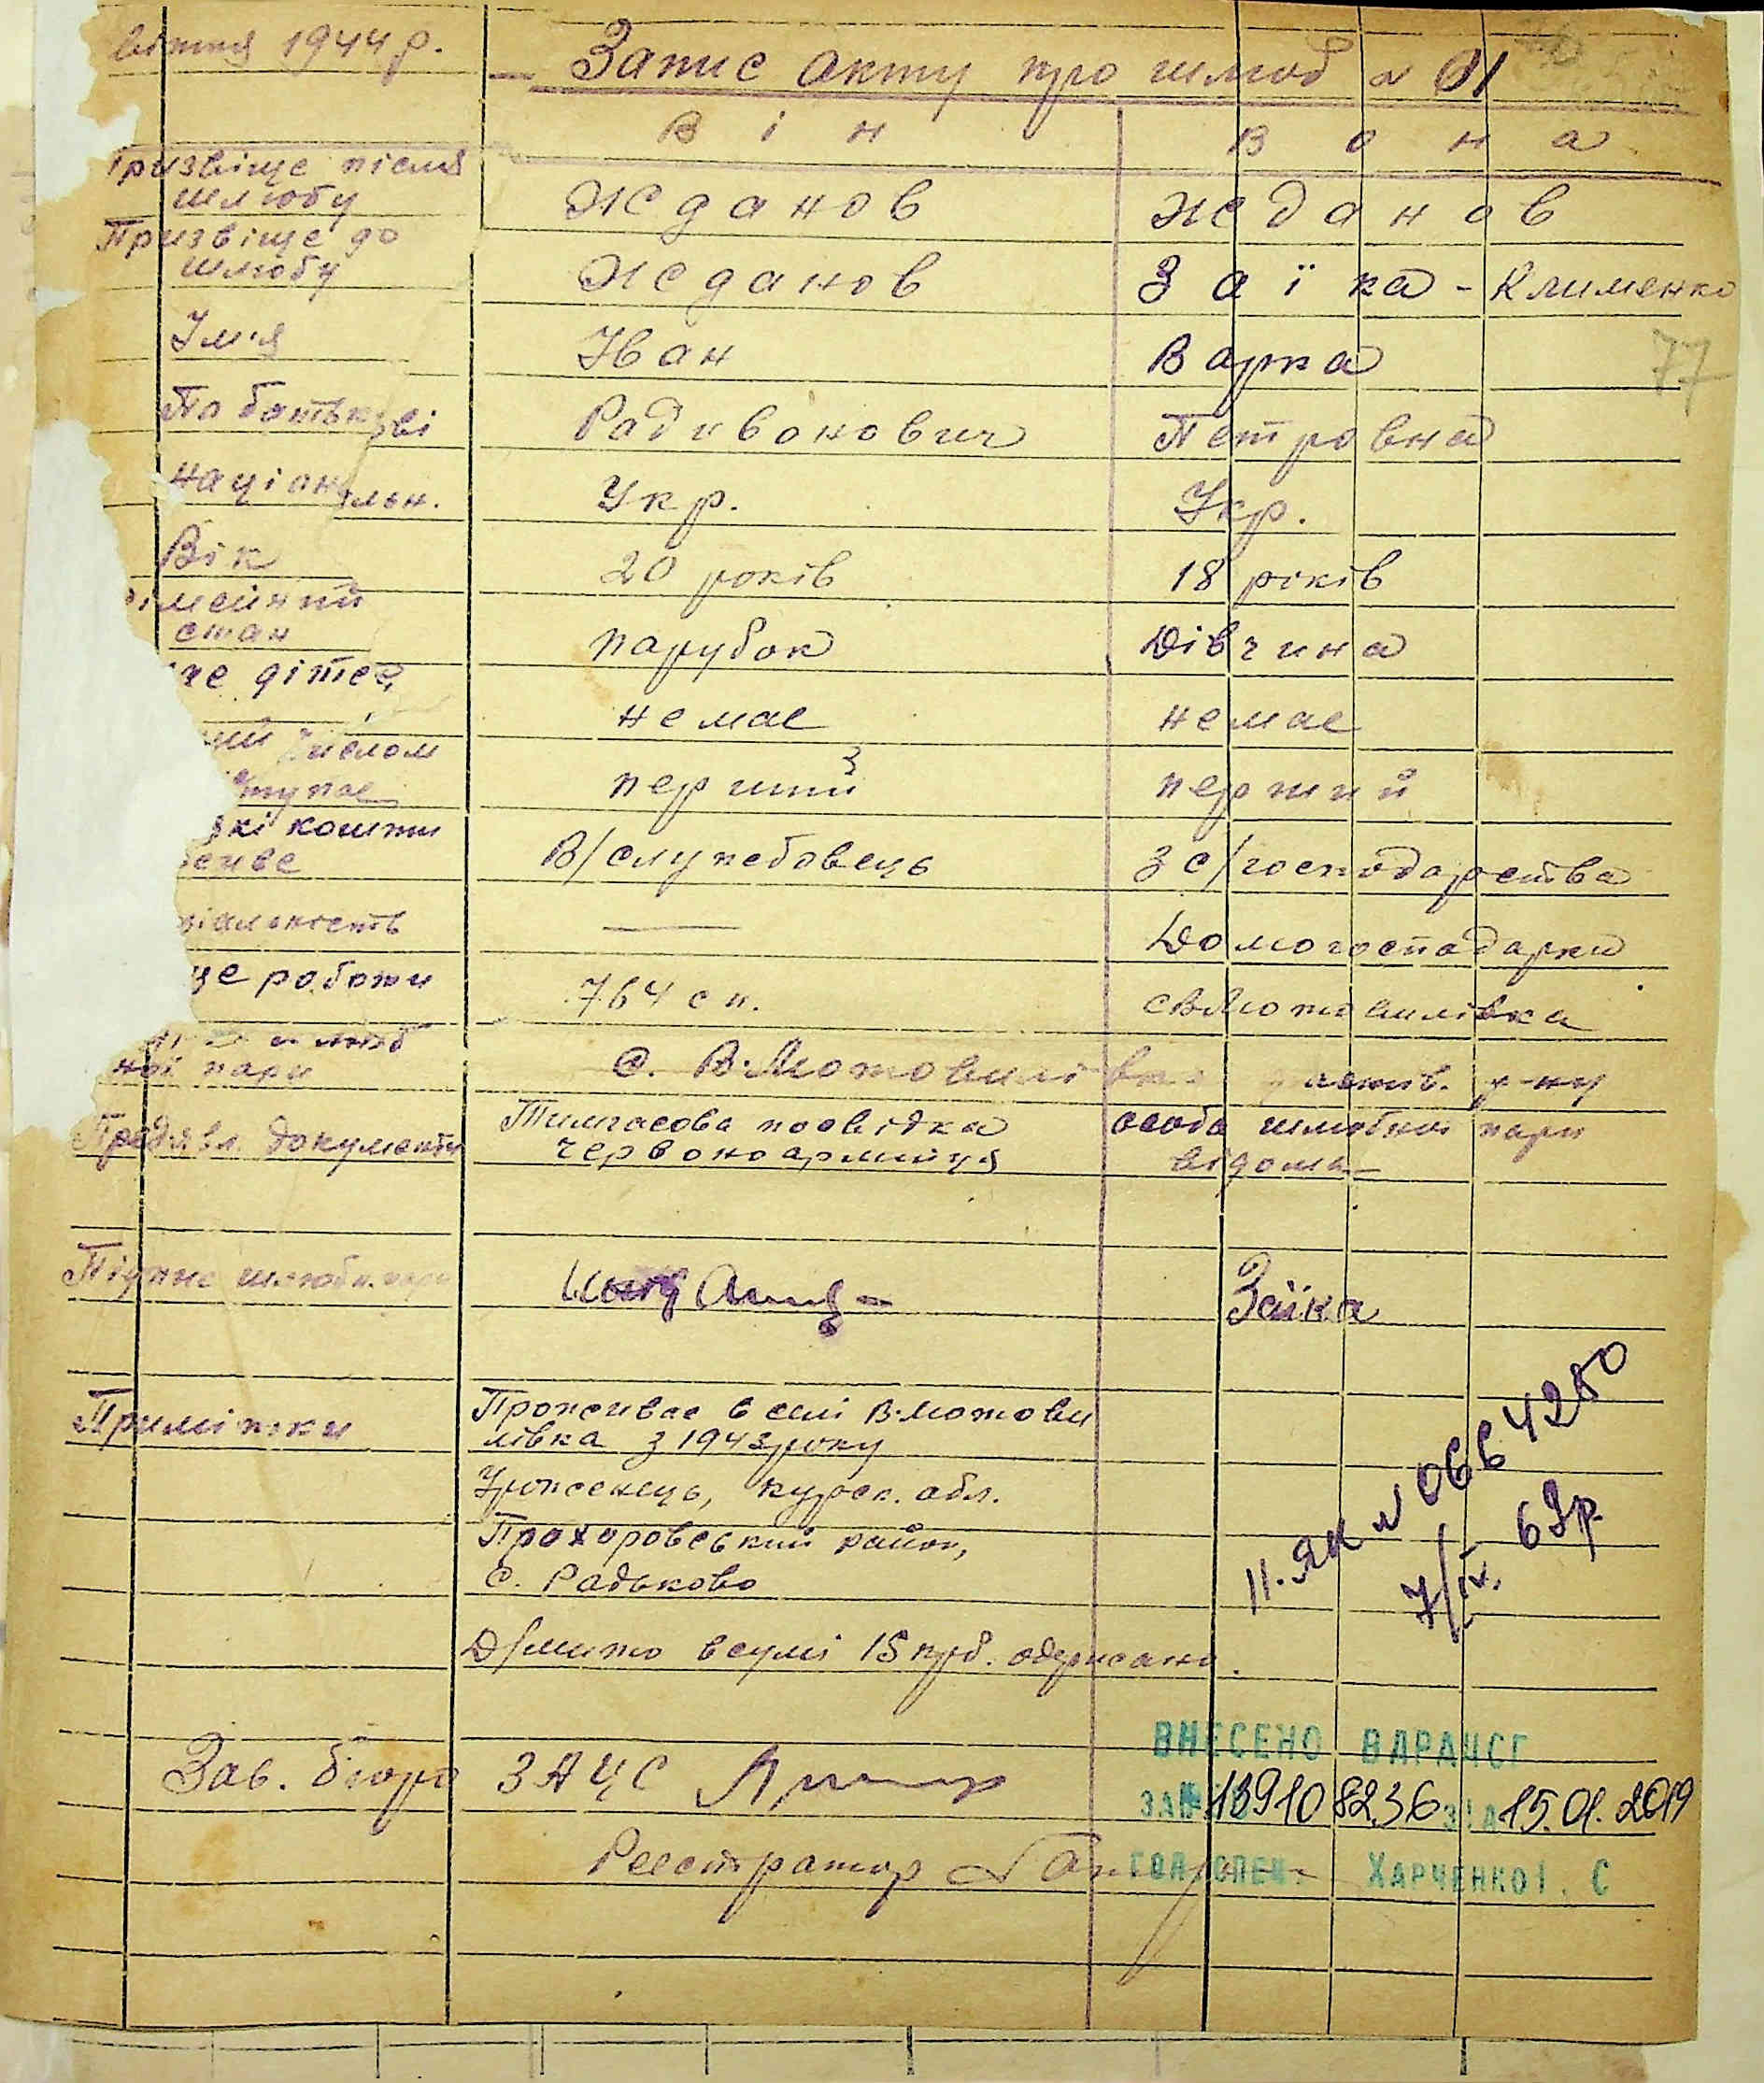 вітня 1944 р.
Запис акту про шлюб № 01
Він Вона
Призвіще після
шлюбу Жданов Жданов
Призвіще до
шлюбу Жданов Заїка - Клименко
Ім'я Іван Варка
77
По батькові Радивонович Петровна
Націонольн. Укр. Укр.
Вік 20 років 18 років
імейний
стан парубок Дівчина
че дітей немае немае
ий числом
ступае перший перший
які кошти
В/служебовець З с/господарства
іяльність — Домогосподарки
це роботи 764 сп. с В Мотовилівка
ної пари с. В-Мотовилівка р-ну
Предявл. документи Тимчасова посвідка особа шлюбної пари
червоноармийця відома
Підпис шлюбн. пари Заїка
Примітки Проживае в селі В-Мотови
лівка з 1943 року
Уроженець, курск. обл.
Прохоровський район,
с. Радьково
II. ЯК № 0664280
7/IV. 69р.
Д/мито в сумі 15 крб. одержано.
Зав. бюро ЗАЦС
ВНЕСЕНО В ДРАЦСГ
ЗА № 139108236 ЗІД 15.01.2019
Реєстратор
ГОЛ. СПЕЦ. ХАРЧЕНКО І. С